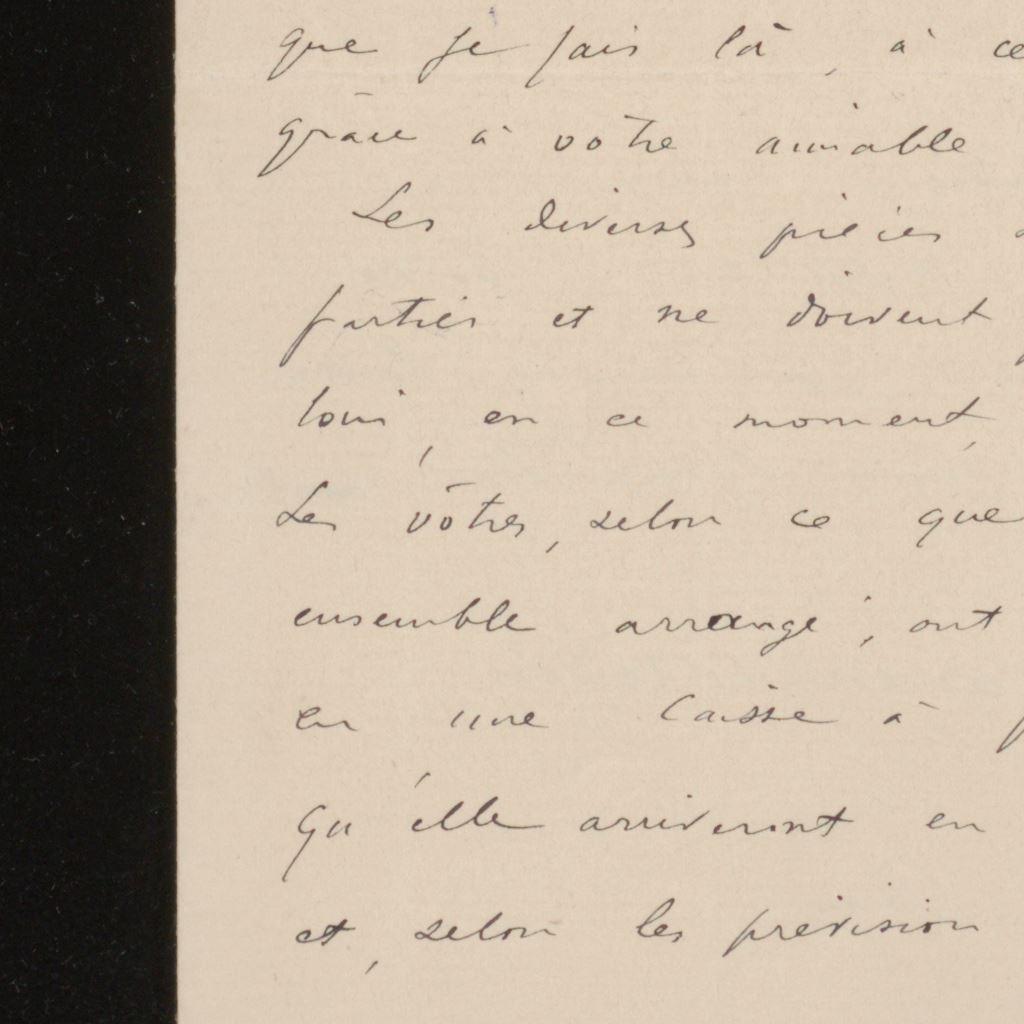 que je fais là, à ce
grâce à votre aimable
Les diverses pièces
parties et ne doivent
loin, en ce moment,
Les vôtres, selon ce que
ensemble arrangé, ont
en une caisse à
Qu'elle arriveront en
et, selon les prévision